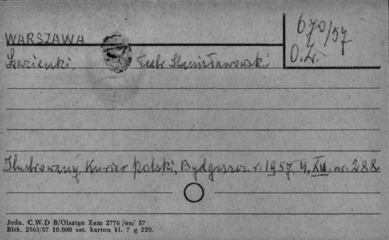 WARSZAWA
670/57
O.Z.
Łazienki, Teatr Stanisławowski
Ilustrowany Kurier Polski, Bydgoszcz r. 1957, 4, XII, nr. 288
Jedn. C.W.D B/Olsztyn Zam 2776 /on/ 57
Bltk. 2563/57 10.000 szt. karton kl. 7 g 220.